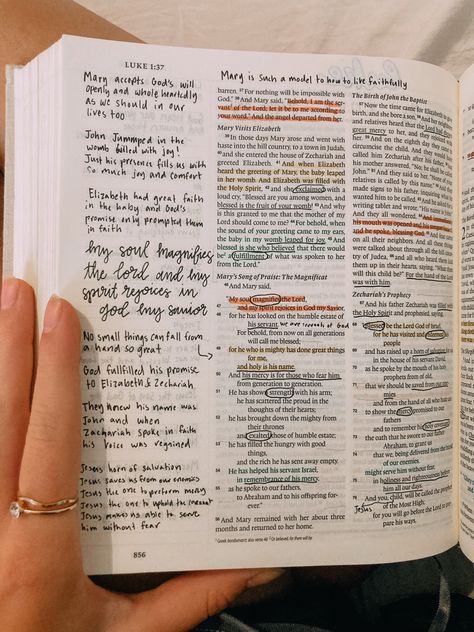 LUKE 1:37
Mary accepts God's will
openly and whole heartedly
as we should in our
lives too
John Jummped in the
womb billed with joy!
Just his presence fills us with
so much joy and comfort
Elizabeth had great faith
in the baby and God's
promise only prompted them
in faith
my soul magnifies
the lord and my
spirit rejoices in
god my savior
No small things can fall from
a hand so great
God fullfilled his promise
to Elizabeth & Zechariah
They knew his name was
John and when
Zachariah spoke in faith
his voice was regained
Jesus horn of salvation
Jesus saves us from our enemies
Jesus the one to perform mercy
Jesus the one to uphold the
Jesus makes us able to serve
him without fear
856
Mary is such a model to how to live faithfully
barren. 37 For nothing will be impossible with
God." 38 And Mary said, "Behold, I am the ser-
vant of the Lord; let it be to me according to
your word." And the angel departed from her.
Mary Visits Elizabeth
39 In those days Mary arose and went with
haste into the hill country, to a town in Judah,
40 and she entered the house of Zechariah and
greeted Elizabeth. 41 And when Elizabeth
heard the greeting of Mary, the baby leaped
in her womb. And Elizabeth was filled with
the Holy Spirit, 42 and she exclaimed with a
loud cry, "Blessed are you among women, and
blessed is the fruit of your womb! 43 And why
is this granted to me that the mother of my
Lord should come to me? 44 For behold, when
the sound of your greeting came to my ears,
the baby in my womb leaped for joy. 45 And
blessed is she who believed that there would
be a fulfillment of what was spoken to her
from the Lord."
Mary's Song of Praise: The Magnificat
46 And Mary said,
"My soul magnifies the Lord,
47 and my spirit rejoices in God my Savior,
48 for he has looked on the humble estate of
his servant. we are servants of God
For behold, from now on all generations
will call me blessed;
49 for he who is mighty has done great things
for me,
and holy is his name.
50 And his mercy is for those who fear him
from generation to generation.
51 He has shown strength with his arm;
he has scattered the proud in the
thoughts of their hearts;
52 he has brought down the mighty from
their thrones
and exalted those of humble estate;
53 he has filled the hungry with good
things,
and the rich he has sent away empty.
54 He has helped his servant Israel,
in remembrance of his mercy,
55 as he spoke to our fathers,
to Abraham and to his offspring for-
ever."
56 And Mary remained with her about three
months and returned to her home.
The Birth of John the Baptist
57 Now the time came for Elizabeth to give
birth, and she bore a son. 58 And her
and relatives heard that the Lord had
great mercy to her, and they
her. 59 And on the eighth day
circumcise the child. And they would
called him Zechariah after his father,
his mother answered, "No; he shall be called
John." 61 And they said to her, "None of
relatives is called by this name." 62 And
made signs to his father, inquiring what
wanted him to be called. 63 And he asked
writing tablet and wrote, "His name is
And they all wondered. 64 And immediately
his mouth was opened and his tongue
and he spoke, blessing God. 65 And fear
on all their neighbors. And all these things
were talked about through all the hill
try of Judea, 66 and all who heard them
them up in their hearts, saying, "What then
will this child be?" For the hand of the Lord
was with him.
Zechariah's Prophecy
67 And his father Zechariah was filled with
the Holy Spirit and prophesied, saying,
68 "Blessed be the Lord God of Israel,
for he has visited and redeemed his
people
69 and has raised up a horn of salvation for us
in the house of his servant David,
70 as he spoke by the mouth of his holy
prophets from of old,
71 that we should be saved from our enemies
and from the hand of all who hate us;
72 to show the mercy promised to our
fathers
and to remember his holy covenant,
73 the oath that he swore to our father
Abraham, to grant us
74 that we, being delivered from the hand
of our enemies,
might serve him without fear,
75 in holiness and righteousness before
him all our days.
76 And you, child, will be called the prophet
of the Most High;
Jesus
for you will go before the Lord to
pare his ways,